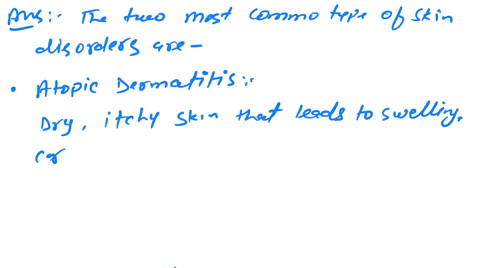 Ans:- The two most commo type of skin
disorders are -
• Atopic Dermatitis:-
Dry, itchy skin that leads to swelling,